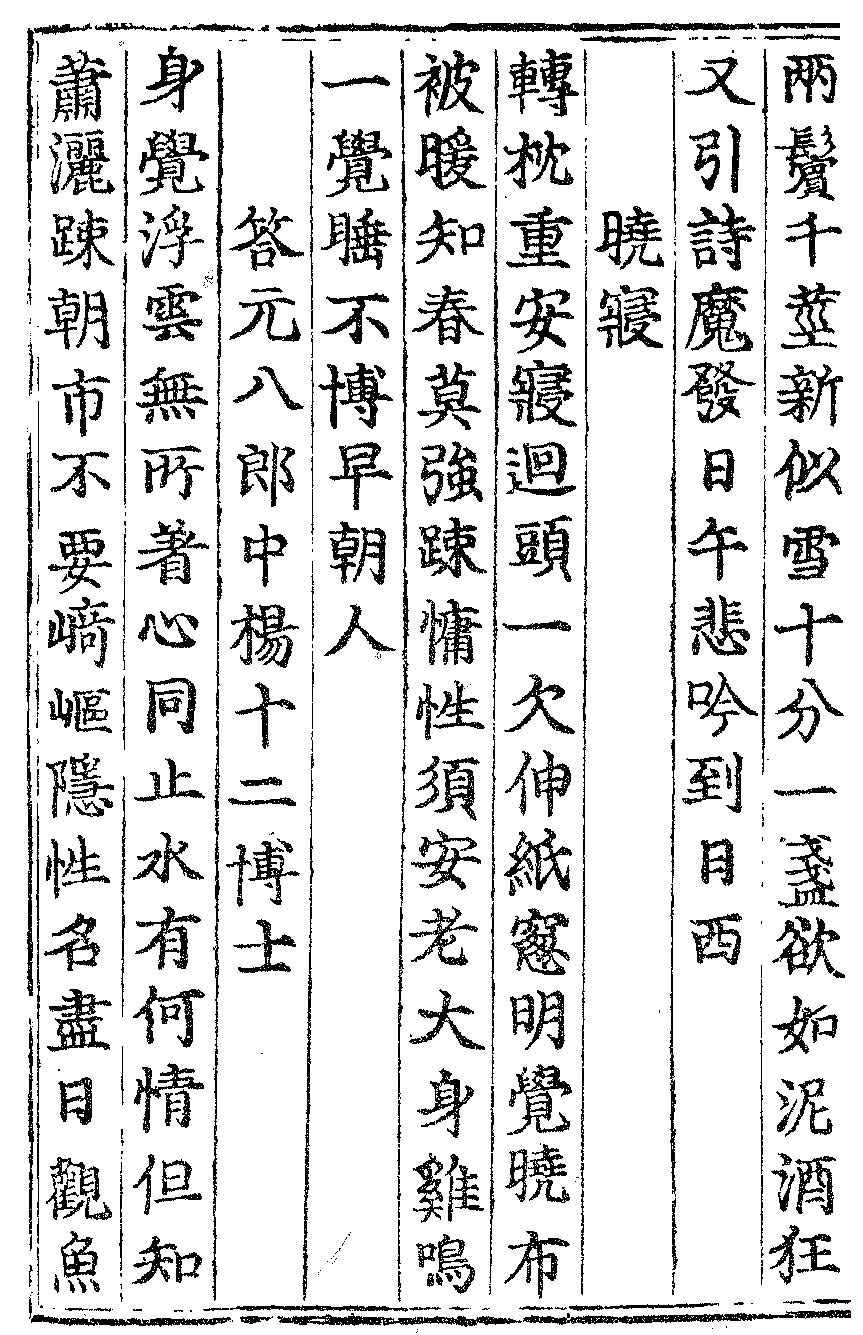 兩鬢千莖新似雪十分一盞欲如泥酒狂
又引詩魔發日午悲吟到日西
曉寢
轉枕重安寢迴頭一欠伸紙窻明覺曉布
被暖知春莫強踈慵性須安老大身雞鳴
一覺睡不博早朝人
答元八郎中楊十二博士
身覺浮雲無所著心同止水有何情但知
蕭灑踈朝市不要崎嶇隱性名盡日觀魚